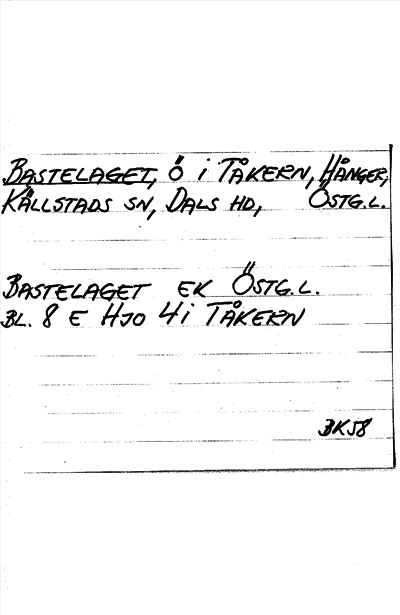 BASTELAGET, Ö i TÅKERN, HÅNGER,
KÄLLSTADS SN, DALS HD, ÖSTG.L.
BASTELAGET EK ÖSTG.L.
BL. 8 E HJO 4 i TÅKERN
BK58